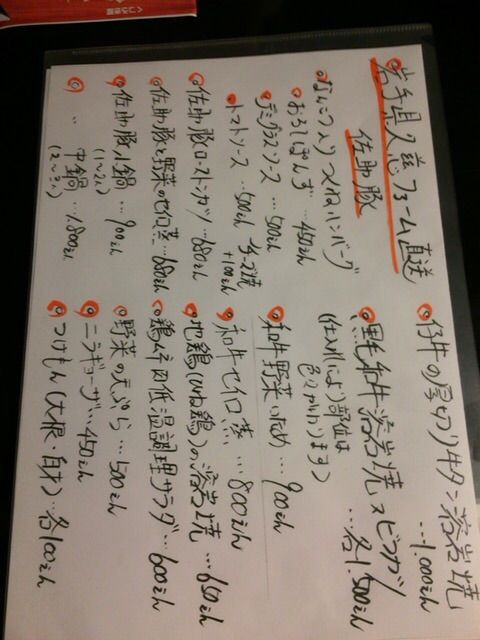 岩手県久慈ファーム直送
佐助豚
なんこつ入りつくねハンバーグ
おろしぽんず…450えん
デミグラスソース…500えん
トマトソース…500えん チーズ焼+100えん
佐助豚ローストンカツ…680えん
佐助豚と野菜のせいろ蒸…680えん
佐助豚小鍋…900えん
(1〜2人)
〃 中鍋…1,800えん
(2〜3人)
仔牛の厚切り牛タン溶岩焼
…1,000えん
黒毛和牛溶岩焼
…各1,500えん
(仕入れにより部位は
色々かわります)
和牛野菜いため…900えん
和牛せいろ蒸…800えん
地鶏(ひね鶏)の溶岩焼…650えん
鶏ムネ肉低温調理サラダ…600えん
野菜の天ぷら…500えん
ニラギョーザ…450えん
つけもん(大根・白才)…各100えん